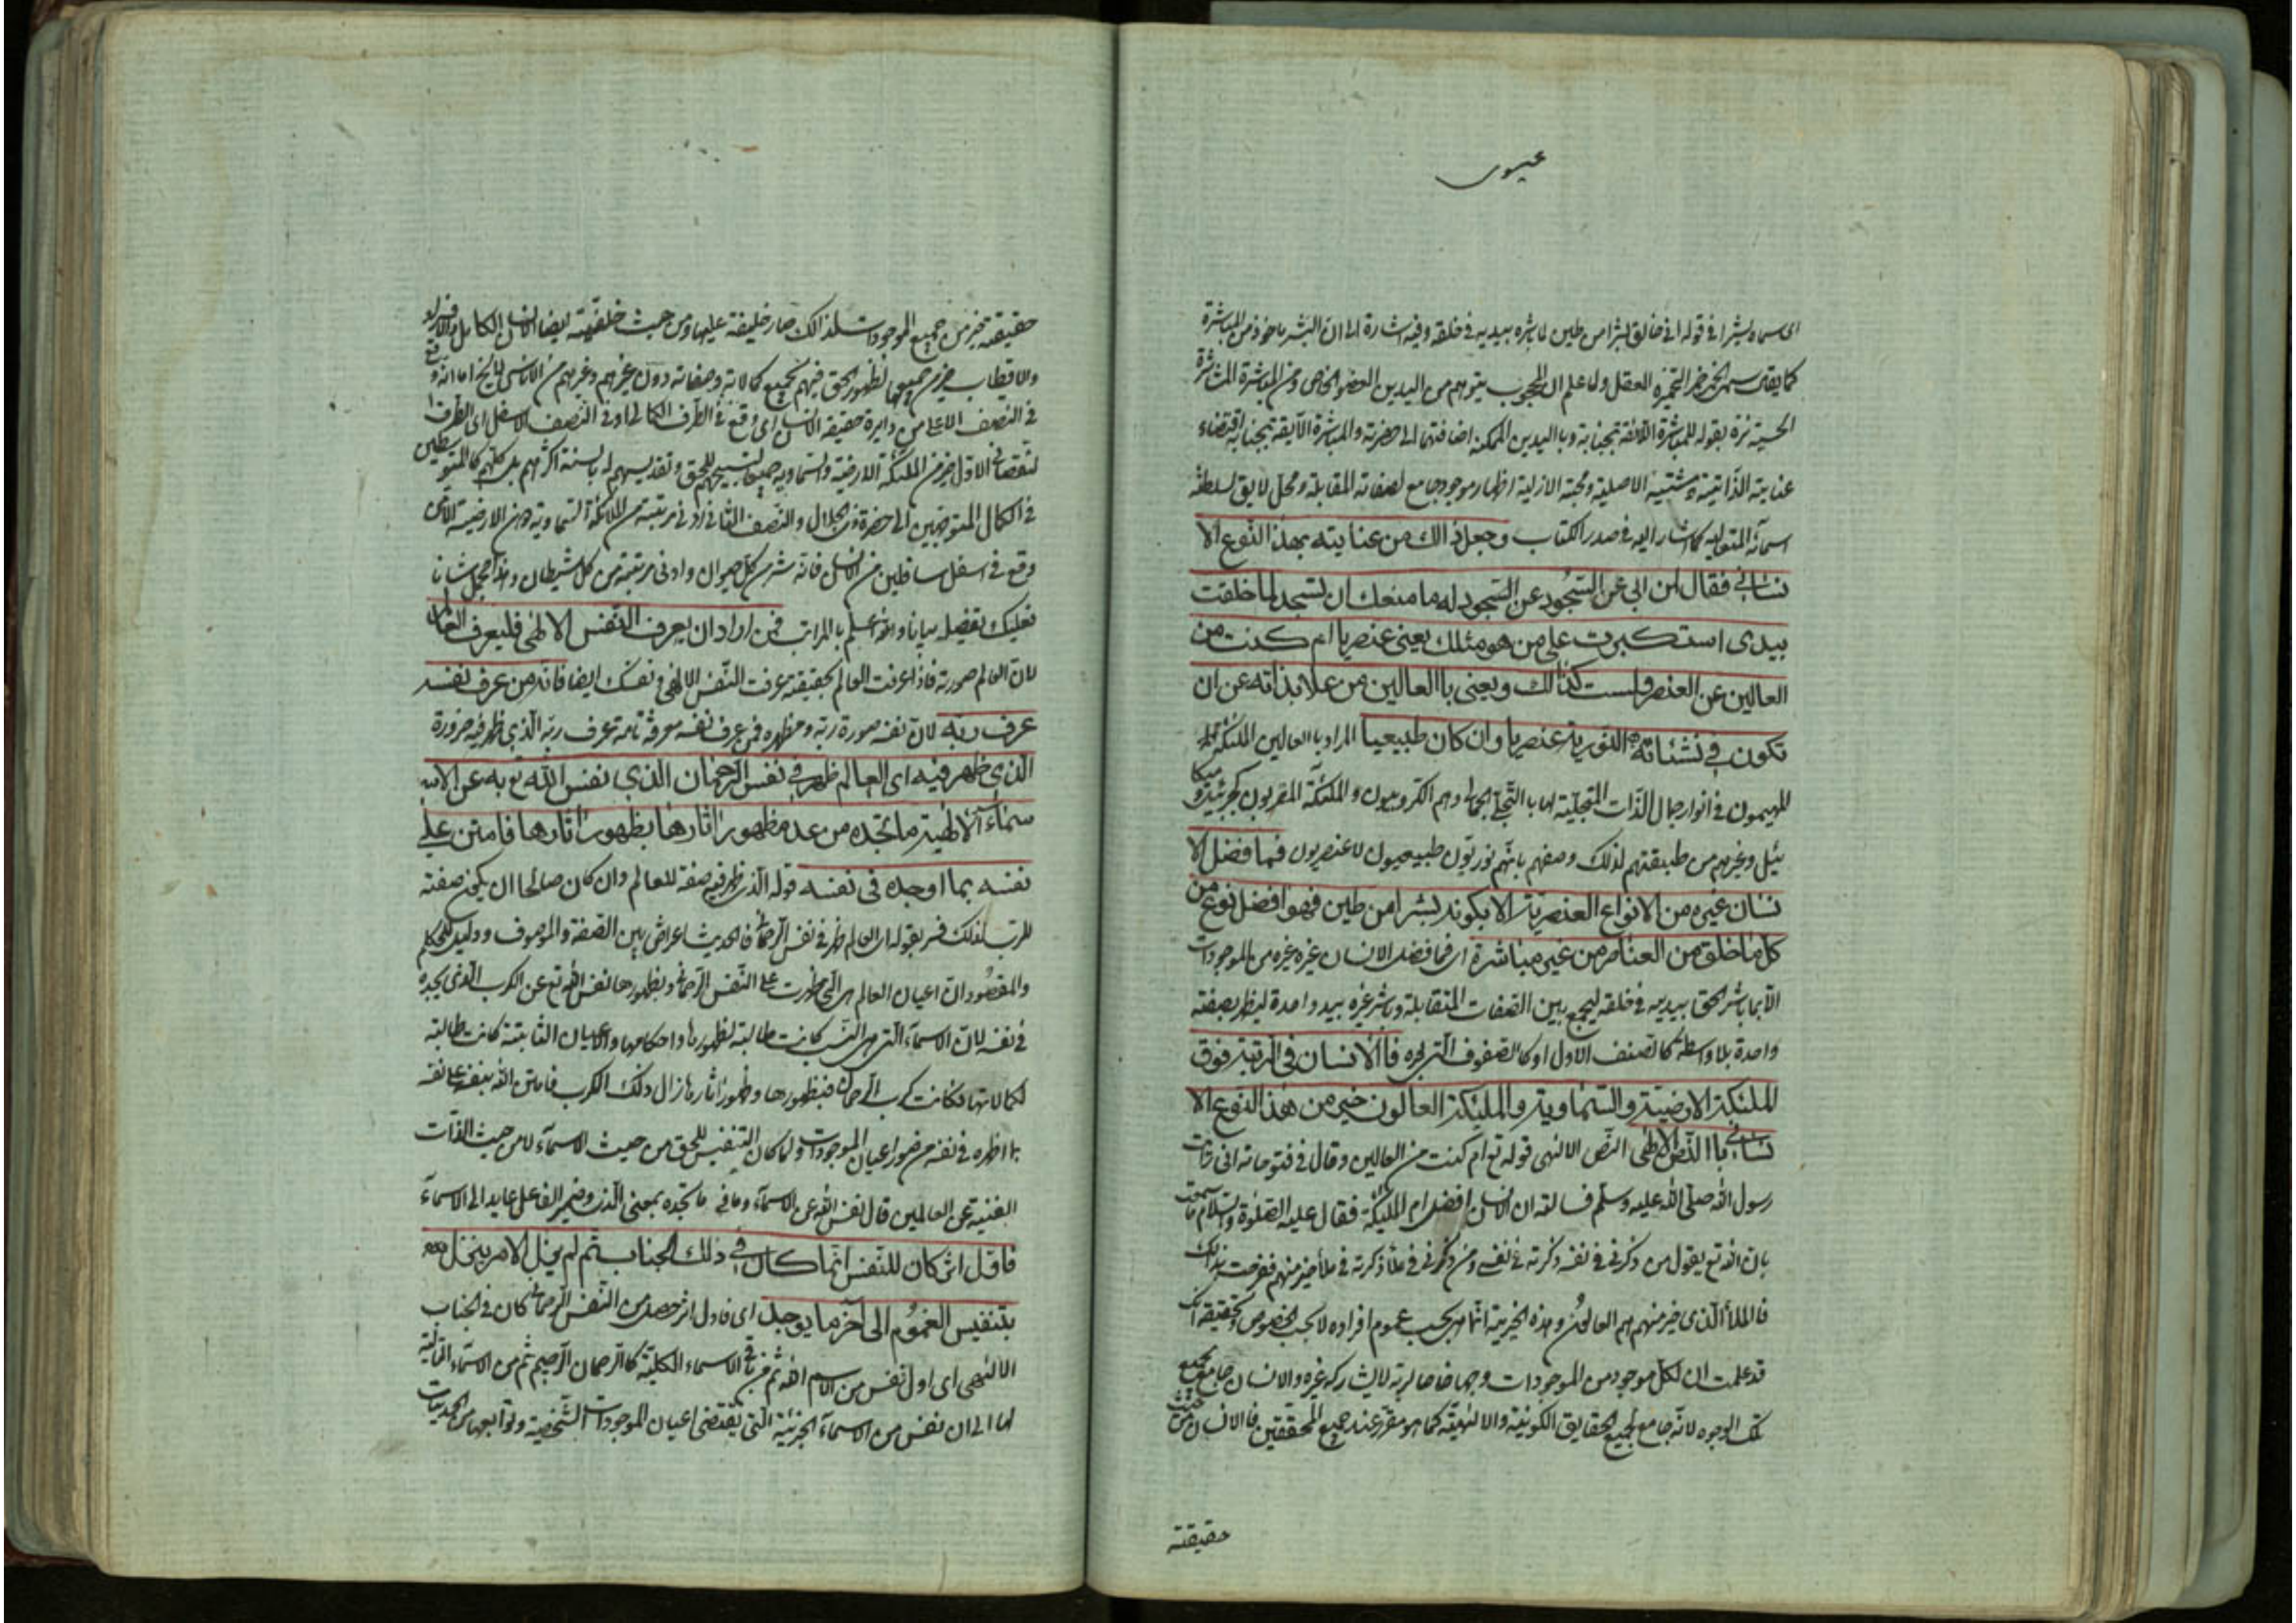 عيسوى
اى سماه بشرا فى قوله انى خالق بشرا من طين لما باشره بيديه فى خلقه وفيه اشارة الى ان البشر ماخوذ من المباشرة
كما يقال سمى الخمر خمرا لتخميره العقل ولما علم ان المحجوب يتوهم من اليدين العضو الخاص ومن المباشرة المباشرة
الحسية نزه بقوله المباشرة اللائقة بجنابه وبا اليدين الممكن اضافتهما الى حضرته والمباشرة اللايقة بجنابه اقتضاء
عنايته الذاتية ومشيته الاصلية ومحبته الازلية اظهار موجود جامع لصفاته المقابلة ومحل لايق لسلطنة
اسمآئه المتعالية كما اشار اليه فى صدر الكتاب وجعل ذالك من عنايته بهذا النوع الا
نسانى فقال لمن ابى عن السجود عن السجود له ما منعك ان تسجد لما خلقت
بيدى استكبرت على من هو مثلك يعنى عنصريا ام كنت من
العالين عن العنصر ولست كذالك ويعنى با العالين من علا بذاته عن ان
تكون فى نشئاته النورية عنصريا وان كان طبيعيا المراد با العالين الملئكة
المهيمون فى انوار جمال الذات المتجلية لها با التجلى الجمالى وهم الكروبيون والملئكة المقربون كجبرئيل وميكا
ئيل وغيرهم من طبقتهم لذلك وصفهم بانهم نوريون طبيعيون لا عنصريون فما فضل الا
نسان غيره من الانواع العنصرية الا بكونه بشرا من طين فهو افضل نوع من
كل ما خلق من العناصر من غير مباشرة اى فما فضل الانسان غيره من الموجودات
الا بما باشر الحق بيديه فى خلقه ليجمع بين الصفات المتقابلة وباشر غيره بيد واحدة ليظهر بصفته
واحدة بلا واسطة كالصنف الاول او كا الصفوف الاخر فا الانسان فى الرتبة فوق
الملئكة الارضية والسماوية والملئكة العالون خير من هذا النوع الا
نسانى با النص الالهى النص الالهى قوله تع ام كنت من العالين وقال فى فتوحاته انى رايت
رسول الله صلى الله عليه وسلم فسالته ان الانسان افضل ام الملئكة فقال عليه الصلوة والسلام اما سمعت
بان الله تع يقول من ذكرنى فى نفسه ذكرته فى نفسى ومن ذكرنى فى ملأ ذكرته فى ملأ خير منهم ففرحت بذالك
فا الملأ الذى خير منهم هم العالون وهذه الخيرية انما هى بحسب عموم افراده لا بحسب الخصوص
قد علمت ان لكل موجود من الموجودات وجها خاصا لربه لا يشاركه غيره والانسان جامع جميع
تلك الوجوه لانه جامع لجميع الحقايق الكونية والالهية كما هو مقرر عند جميع المحققين فا الانسان من حيث
حقيقته
حقيقته خير من جميع الموجودات لذالك صار خليفة عليها ومن حيث خلقيته ايضا الانسان الكامل والافراد
والاقطاب خير من جميعها لظهور الحق فيهم بجميع كمالاته وصفاته دون غيرهم وغيرهم من الاناسى اما انه وقع
فى النصف الاعلى من دايرة حقيقة الانسان اى وقع فى الطرف الكمالى او فى النصف الاسفل اى الطرف
النقصانى الاول خير من الملئكة الارضية والسماوية جميعا لتسبيحهم للحق وتقديسهم له بالسنة اكثرهم بل كلهم كالمتوسطين
فى الكمال المتوجهين الى حضرة ذى الجلال والنصف الثانى ادنى مرتبة من الملائكة السماوية ومن الارضية الذى
وقع فى اسفل سافلين من الانسان فانه شر من كل حيوان وادنى مرتبة من كل شيطان وهذا مجمل شاننا
فعليك تفصيله بيانا والله اعلم با المراتب فمن اراد ان يعرف النفس الالهى فليعرف العالم
لان العالم صورته فاذا عرفت العالم بحقيقته عرفت النفس الالهى وفى نفسك ايضا فانه من عرف نفسه
عرف ربه لان نفسه صورة ربه ومظهره فمن عرف نفسه معرفة تامة عرف ربه الذى ظهر فيه ضرورة
الذى ظهر فيه اى العالم ظهر فى نفس الرحمان الذى نفس الله تع به عن الا
سماء الالهية ما تجده من عدم ظهور اثارها بظهور اثارها فامتن على
نفسه بما اوجده فى نفسه قوله الذى ظهر فيه صفة للعالم وان كان صالحا ان يكون صفة
للرب لذلك فسر بقوله اى العالم ظهر فى نفس الرحمان فالحديث اعتراض بين الصفة والموصوف ودليل للحكم
والمقصود ان اعيان العالم هى التى ظهرت على النفس الرحمانى وبظهورها نفس الله تع عن الكرب الذى يجده
فى نفسه لان الاسمآء التى هى النسب كانت طالبة لظهورها واحكامها والاعيان الثابتة كانت طالبة
لكمالاتها فكانت كرب الرحمان فبظهورها وظهور اثارها زال ذلك الكرب فامتن الله بنفسه على نفسه
بما اظهره فى نفسه من صور اعيان الموجودات ولما كان التنفيس للحق من حيث الاسمآء لا من حيث الذات
الغنية عن العالمين قال نفس الله عن الاسمآء وما فى ما تجده بمعنى الذى وضمير الفاعل عايد الى الاسمآء
فاول اثر كان للنفس انما كان فى ذلك الجناب ثم لم يزل الامر ينزل
بتنفيس الغموم الى آخر ما يوجد اى فاول اثر حصل من النفس الرحمانى كان فى الجناب
الالهى اى اول نفس من الاسم الله ثم من باقى الاسماء الكلية كا الرحمان الرحيم ثم من الاسماء التالية
لها الى ان نفس من الاسمآء الجزئية التى يقتضى اعيان الموجودات الشخصية وتوابعها من الجزئيات